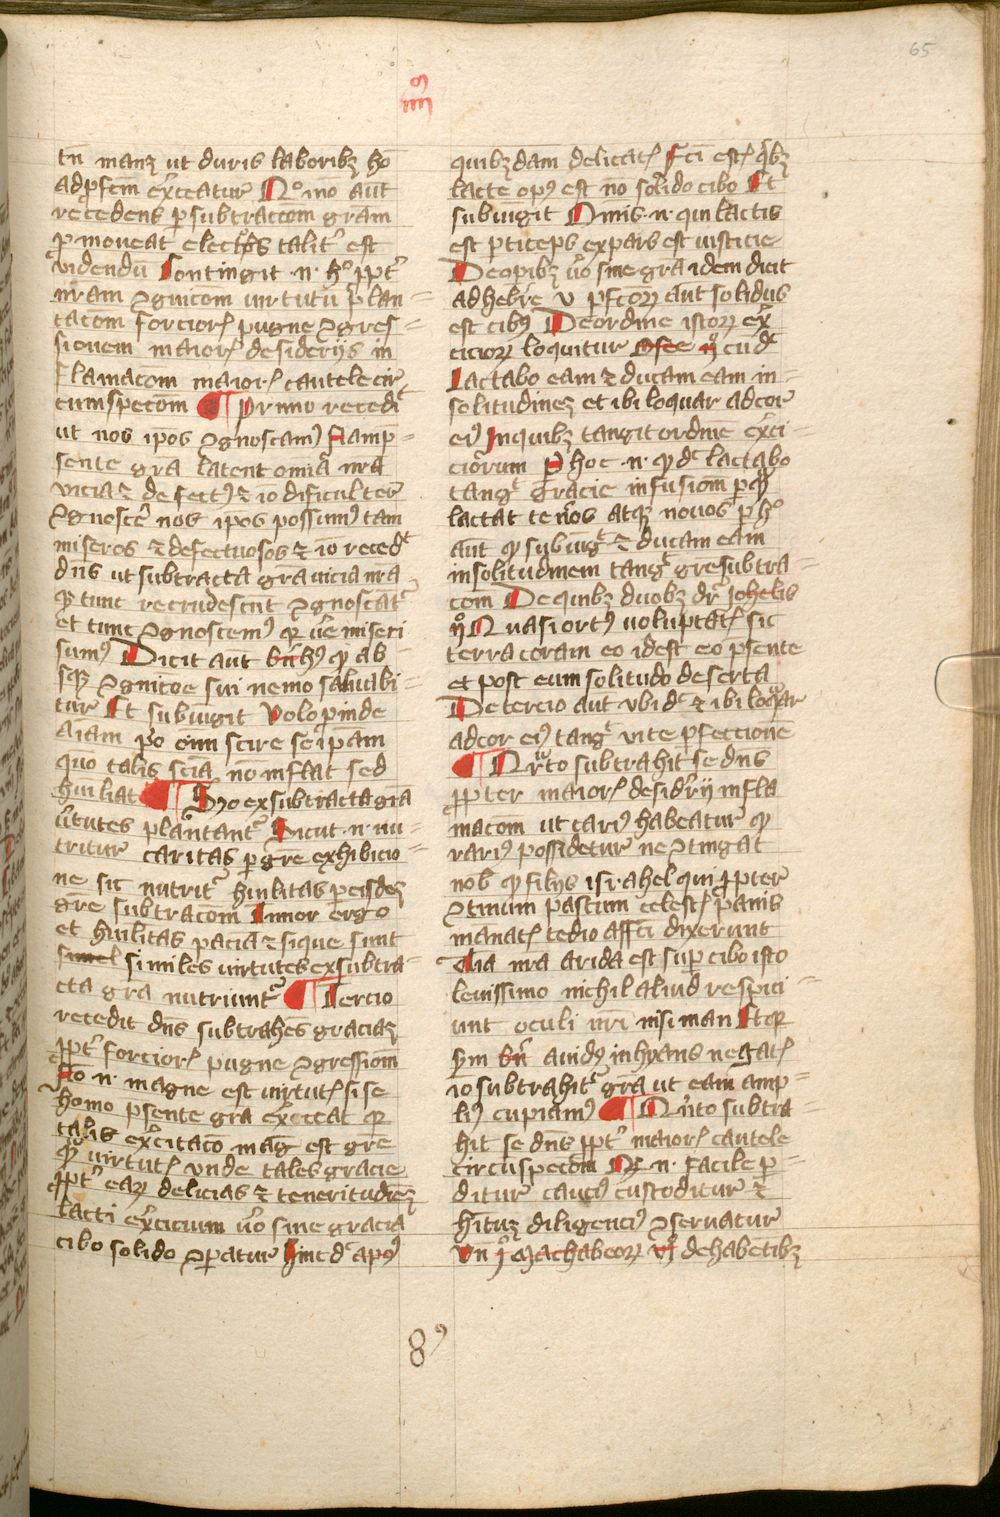 65
iiii°
tn̄ manꝫ ut duris laboribꝫ ho̅
ad ꝓfcm̄ ex̾ceatur Nº ıno̅ aut̅
recedens ꝑ subtraccōm gram
ꝓmoveat electos talit̾ est
videndū Contingit .n. hº ꝓpt̾
nr̄am ꝯgnicōm virtutū plan=
tacōm forcior̄ pugne ꝯgres=
sionem maior̄ desiderijs in
flamacōm maior̄ cautele cir
cumspecōm ¶ Primo recedit
ut nos ip̄os ꝯgnoscamꝰ Nam p̄=
sente gr̄a latent om̄ia nr̄a
vicia ⁊ defectꝰ ⁊ iō dificulter
ꝯgnosce̾ nos ip̄os possumꝰ tam
miseros ⁊ defectuosos ⁊ iō reced̾t
dn̄s ut subtracta gr̄a vicia nr̄a
qꝫ tunc recrudescūt ꝯgnoscat̾
et tunc ꝯgnoscemꝰ qꝫ v̾e miseri
sumꝰ Dicit aut̄ bn̄hꝰ qꝫ ab=
sqꝫ ꝯgnicōe sui nemo salvabi=
tur Et subiūgit Volo pinde
aīam pº om̄ scire seip̄am
quō talis scīa nō inflat sed
humiliat ¶ Sº ex subtracta grā
v̾tutes plantant̾ Sicut .n. nu=
tritur caritas ꝑ gr̄e exhibicio=
ne sic nutrit̾ humilitas ꝑ eisdeꝫ
gr̄e subtracōm Timor ergo
et humilitas pacīa ⁊ sique sunt
simel similes virtutes ex subtra=
cta gra nutriunt̾ ¶ Tercio
recedit dn̄s subtrahens graciaꝫ
ꝓpt̾ forcior̄ pugne ꝯgressiōm
Nō .n. magne est virtut̄ si se
homo p̄sente gra ex̾ceat qꝫ
talis ex̾citacō mag̾ est gr̄e
qꝫ virtut̄ unde tales gracie
ꝓpt̾ eaꝝ delicias ⁊ teneritudīeꝫ
lacti ex̾cicium v̾o sine gracia
cibo solido ꝯꝑatur Hinc d̾c apꝰ
quibꝫdam delicat̄ Fci est̄ qͥbꝫ
lacte opꝰ est nō solido cibo Et
subiūgit Om̄is .n. qui lactis
est ꝑticeps expars est iusticie
De opibꝫ v̾o sine gr̄a idem dicit
ad hebre v ꝑfc̄oꝝ aut solidus
est cibꝰ De ordine istoꝝ ex̾
cicioꝝ loquitur Osee ijº cū d̾t
Lactabo eam ⁊ ducam eam in=
solitudineꝫ et ibi loquar ad cor
eiꝰ In quibꝫ tangit ordinē ex̾ci=
ciorum ꝑ hoc .n. qꝫ d̾t lactabo
tang̾t gracie infusiom̄ ꝑ qꝫ
lactat teneros atqꝫ novos ꝑ hº
aut̄ qꝫ subiūg̾t ⁊ ducam eam
in solitudinem tang̾t gre subtra=
com De quibꝫ duobꝫ dr̄ Johelis
ijº Quasi ortꝰ voluptat̄ sic
terra coram eo id est eo p̄sente
et post eum solitudo deserta
De tercio aut ubi d̾t ⁊ ibi loquar
ad cor eiꝰ tang̾t vite ꝑfectionē
¶ Qͬto subtrahit se dn̄s
ꝓpter maior̄ desid̾rij infla
macōm ut carꝰ habeatur qꝫ
rariꝰ possidetur ne ꝯtingat
nob̄ qꝫ filijs israhel qui ꝓpter
ꝯtinuū pastum celest̄ panis
manat̄ tedio affc̄i dixerunt
Aīa nr̄a arida est suꝑ cibo isto
levissimo nichil aliud respici=
unt oculi nr̄i nisi man Itqꝫ
sꝫm bn̄ avidꝰ inhyans negat̄
iō subtrahit̾ gr̄a ut eam amp=
liꝰ cupiamꝰ ¶ Qͥnto subtra=
hit se dn̄s ꝓpt̾ maior̄ cautele
circūspecōm Nc̄ .n. facile ꝑ=
ditur caucꝰ custoditur ⁊
hituꝫ diligenciꝰ ꝯservatur
Vn̄ jº Machabeoꝝ vjº de habētibꝫ
8ꝰ